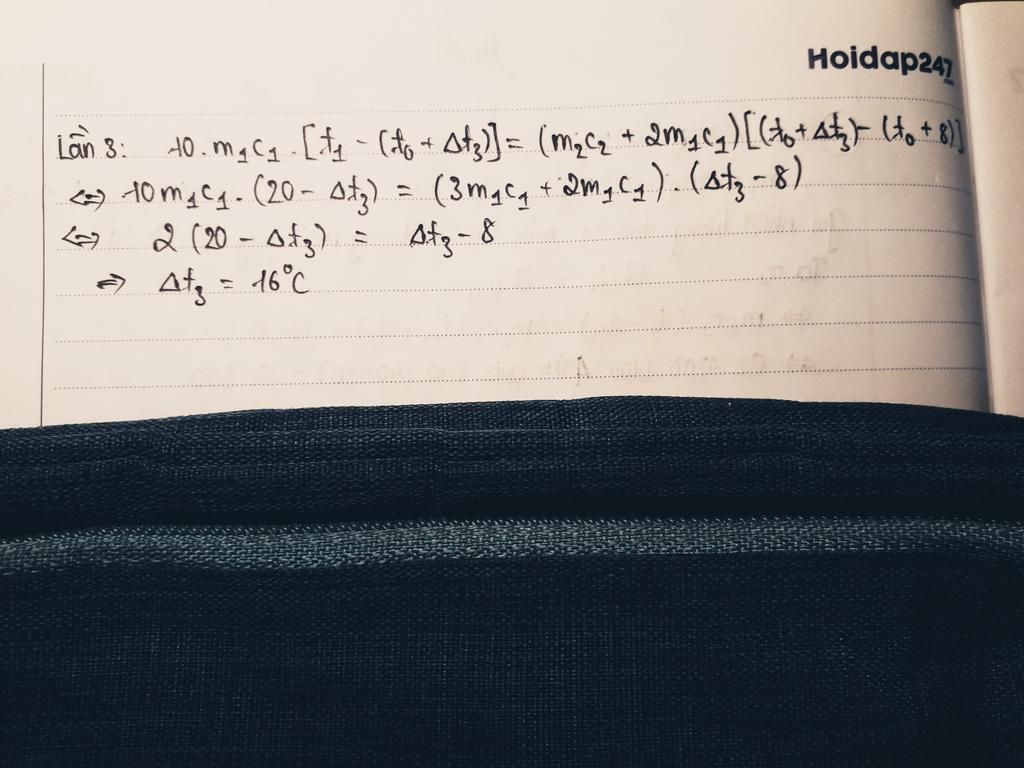 Hoidap247
Lần 3: 10.m₁c₁.[t₁ - (t₀ + Δt₃)] = (m₂c₂ + 2m₁c₁)[(t₀ + Δt₃) - (t₀ + 8)]
⇔ 10m₁c₁.(20 - Δt₃) = (3m₁c₁ + 2m₁c₁).(Δt₃ - 8)
⇔ 2(20 - Δt₃) = Δt₃ - 8
⇒ Δt₃ = 16°C